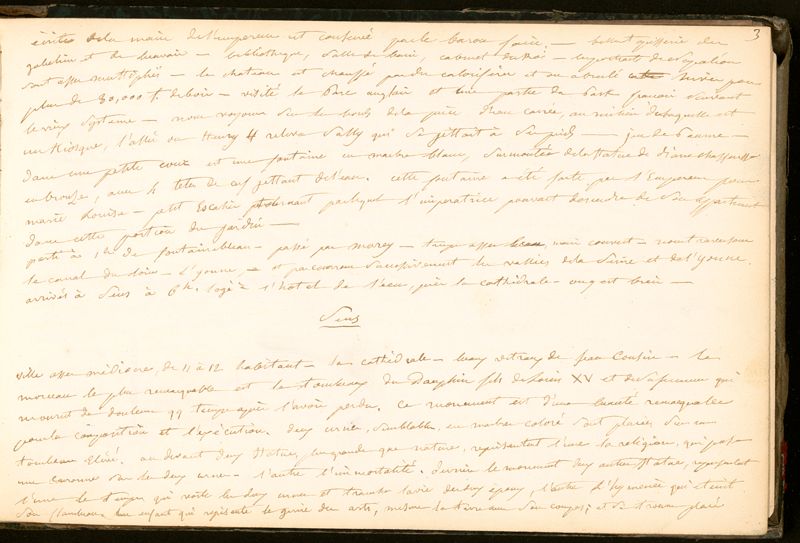 3
écrite de la main de l'empereur et conservé par le baron fain. — belle tapisserie des
gobelins et de beauvais — bibliothèque, salle de bain, cabinet du Roi — les portraits de Napoléon
sont assez multipliés — le chateau est chauffé par du calorifère et on a brulé cette
plus de 30,000 f. de bois — visité le Parc anglais et une partie du Parc français suivant
le vieux système — nous voyons sur les bords de la pièce d'eau carrée, au milieu de laquelle est
un Kiosque, l'allée ou Henry 4 releva Sully qui se jettait à ses pieds — jeu de Paume —
dans une petite cour est une fontaine en marbre blanc, surmontée de la statue de diane chasseresse
en bronze, avec 4 têtes de cerf jettant de l'eau. cette fontaine a été faite par l'Empereur pour
marie Louise — petit Escalier tournant par lequel l'impératrice pouvait descendre de son appartement
dans cette portion du jardin —
parti à 1h de fontainebleau — passé par moret — temps assez beau, mais couvert — nous traversons
le canal du loing — l'yonne, — et parcourons successivement les vallées de la Seine et de l'Yonne.
arrivés à Sens à 6h. logé à l'hotel de l'écu, près la cathédrale — on y est bien —
Sens
ville assez médiocre, de 11 à 12 habitant — la cathédrale — beaux vitraux de Jean Cousin — le
morceau le plus remarquable est le tombeau du Dauphin fils de Louis XV et de sa femme qui
mourut de douleur qq temps après l'avoir perdu. Ce monument est d'une beauté remarquable
pour la composition et l'exécution. deux urnes, semblables, en marbre coloré sont placées sur un
tombeau élevé. au devant deux statues, plus grande que nature, représentent l'une la religion, qui pose
une couronne sur les deux urnes — l'autre l'immortalité. derrière le monument deux autres statues, représentent
l'une le temps qui voile les deux urnes et tranche la vie des deux époux, l'autre l'hymenée qui éteint
son flambeau. Un enfant qui représente le génie des arts, mesure la terre au compas, et se trouve placé